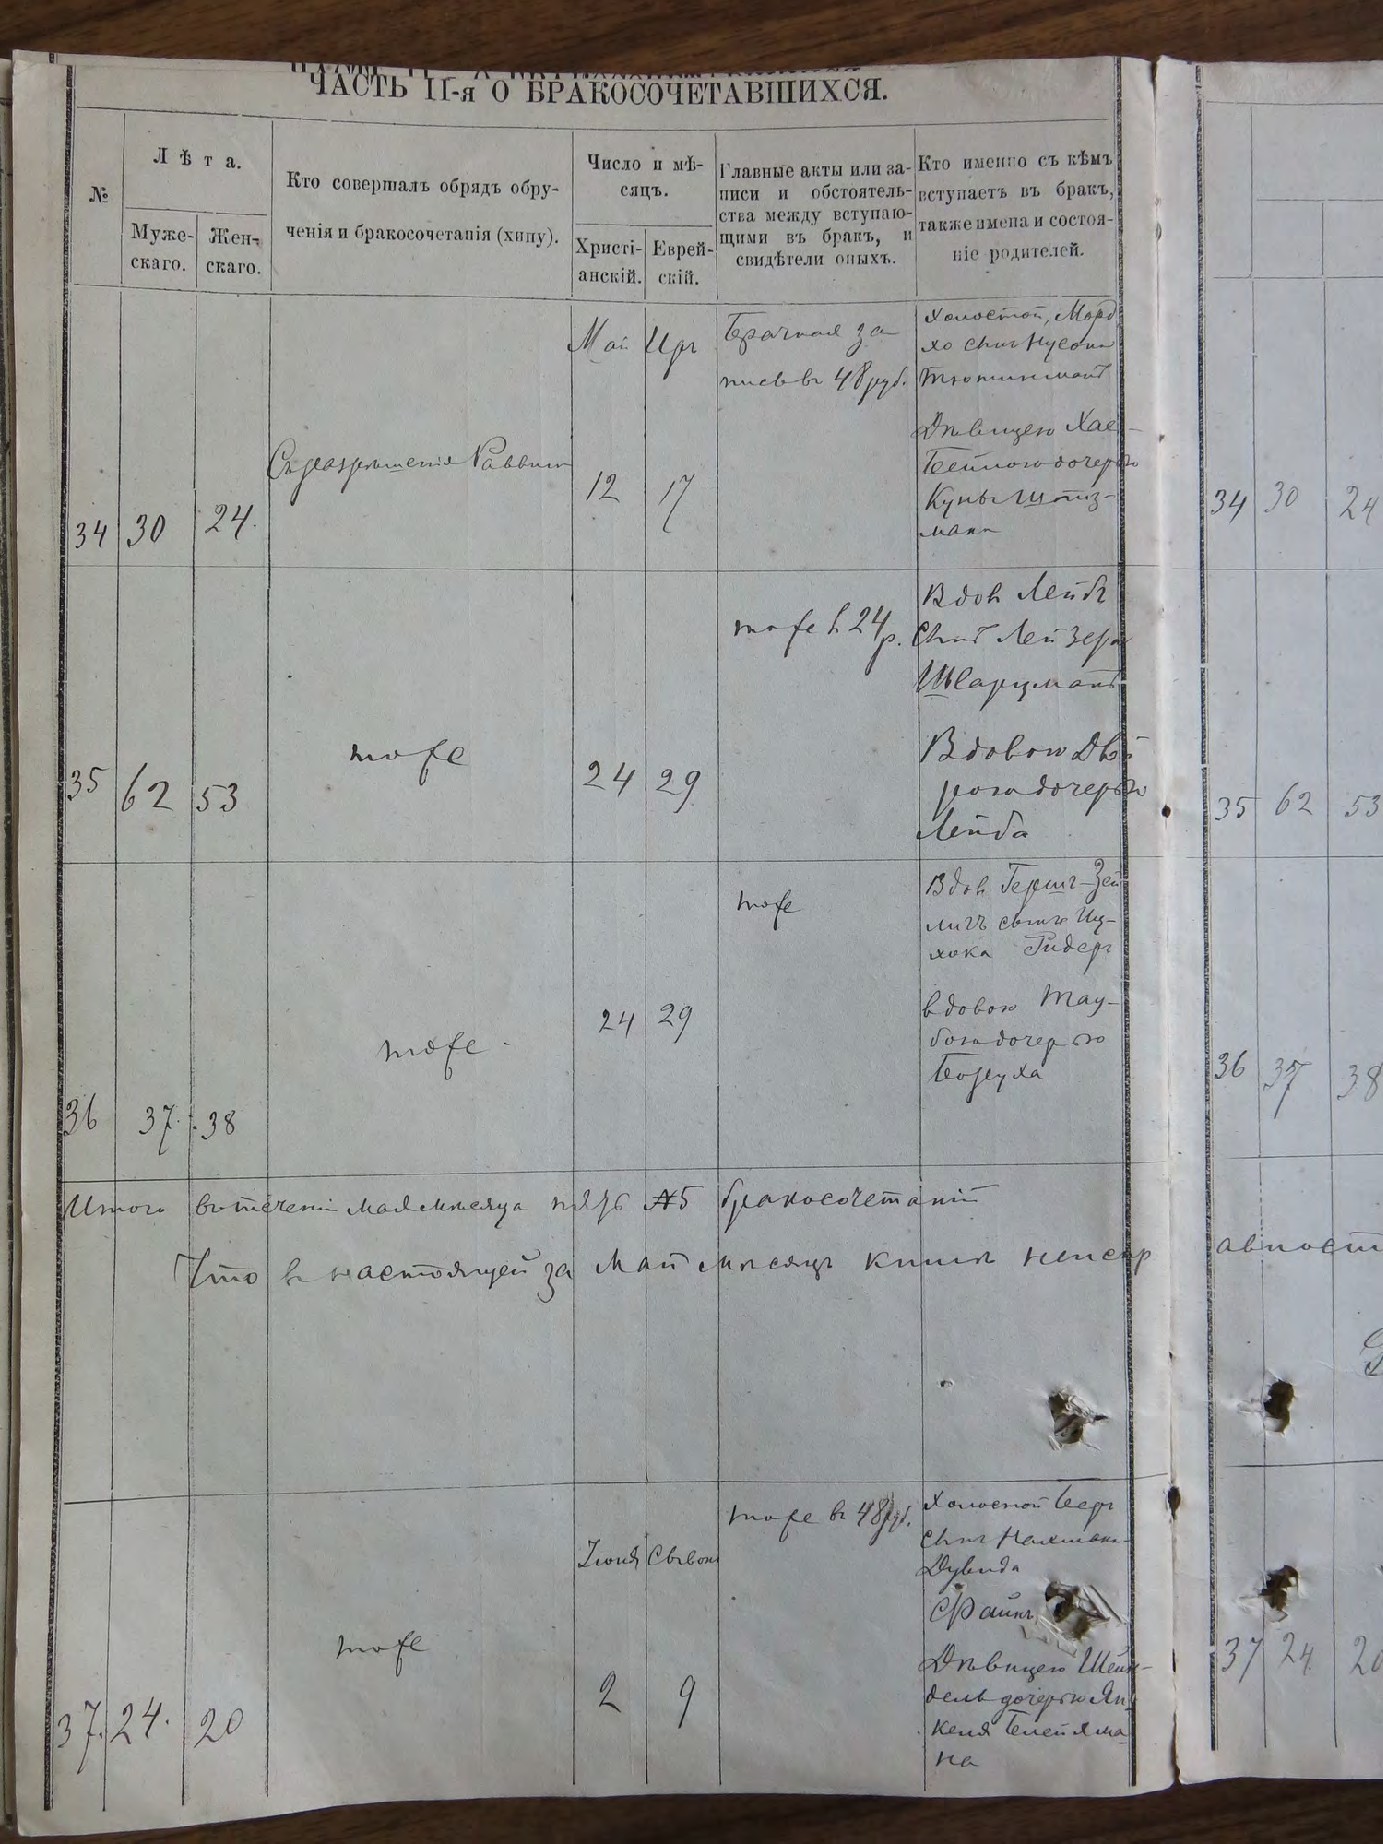 ЧАСТЬ II-я О БРАКОСОЧЕТАВШИХСЯ.
№
Лѣта.
Муже-
скаго.
Жен-
скаго.
Кто совершалъ обрядъ обру-
ченія и бракосочетанія (хипу).
Число и мѣ-
сяцъ.
Христі-
анскій.
Еврей-
скій.
Главные акты или за-
писи и обстоятель-
ства между вступаю-
щими въ бракъ, и
свидѣтели оныхъ.
Кто именно съ кѣмъ
вступаетъ въ бракъ,
также имена и состоя-
ніе родителей.
34 30 24.
Съ разрѣшенія Раввина
Май Иръ
12 17
Брачная за
пись въ 48 руб.
Холостой, Морд
ко сынъ Нусона
Дѣвицею Хае-
Бейлою дочерью
мана
34 30 24
35 62 53
тоже
24 29
тоже в 24 р.
Вдов Лейбъ
сынъ Лейзера
Шварцманъ
Вдовою Двой
рою дочерью
Лейба
35 62 53
36 37. 38
тоже
24 29
тоже
Вдов Гершъ-Зей
лигъ сынъ Иц-
хока Гидеръ
вдовою Тау-
бою дочерью
Боруха
36 37 38
Итого втеченіи мая мѣсяца пять №5 бракосочетаній
Что в настоящей за Май мѣсяцъ книгѣ неиспр
авност
37. 24. 20
тоже
Іюня Сивонъ
2 9
тоже в 48 руб.
Холостой Беръ
сынъ Нахмана
Дувида
Файнъ
Дѣвицею Шейн-
дель дочерью Ян
келя
на
37 24 20